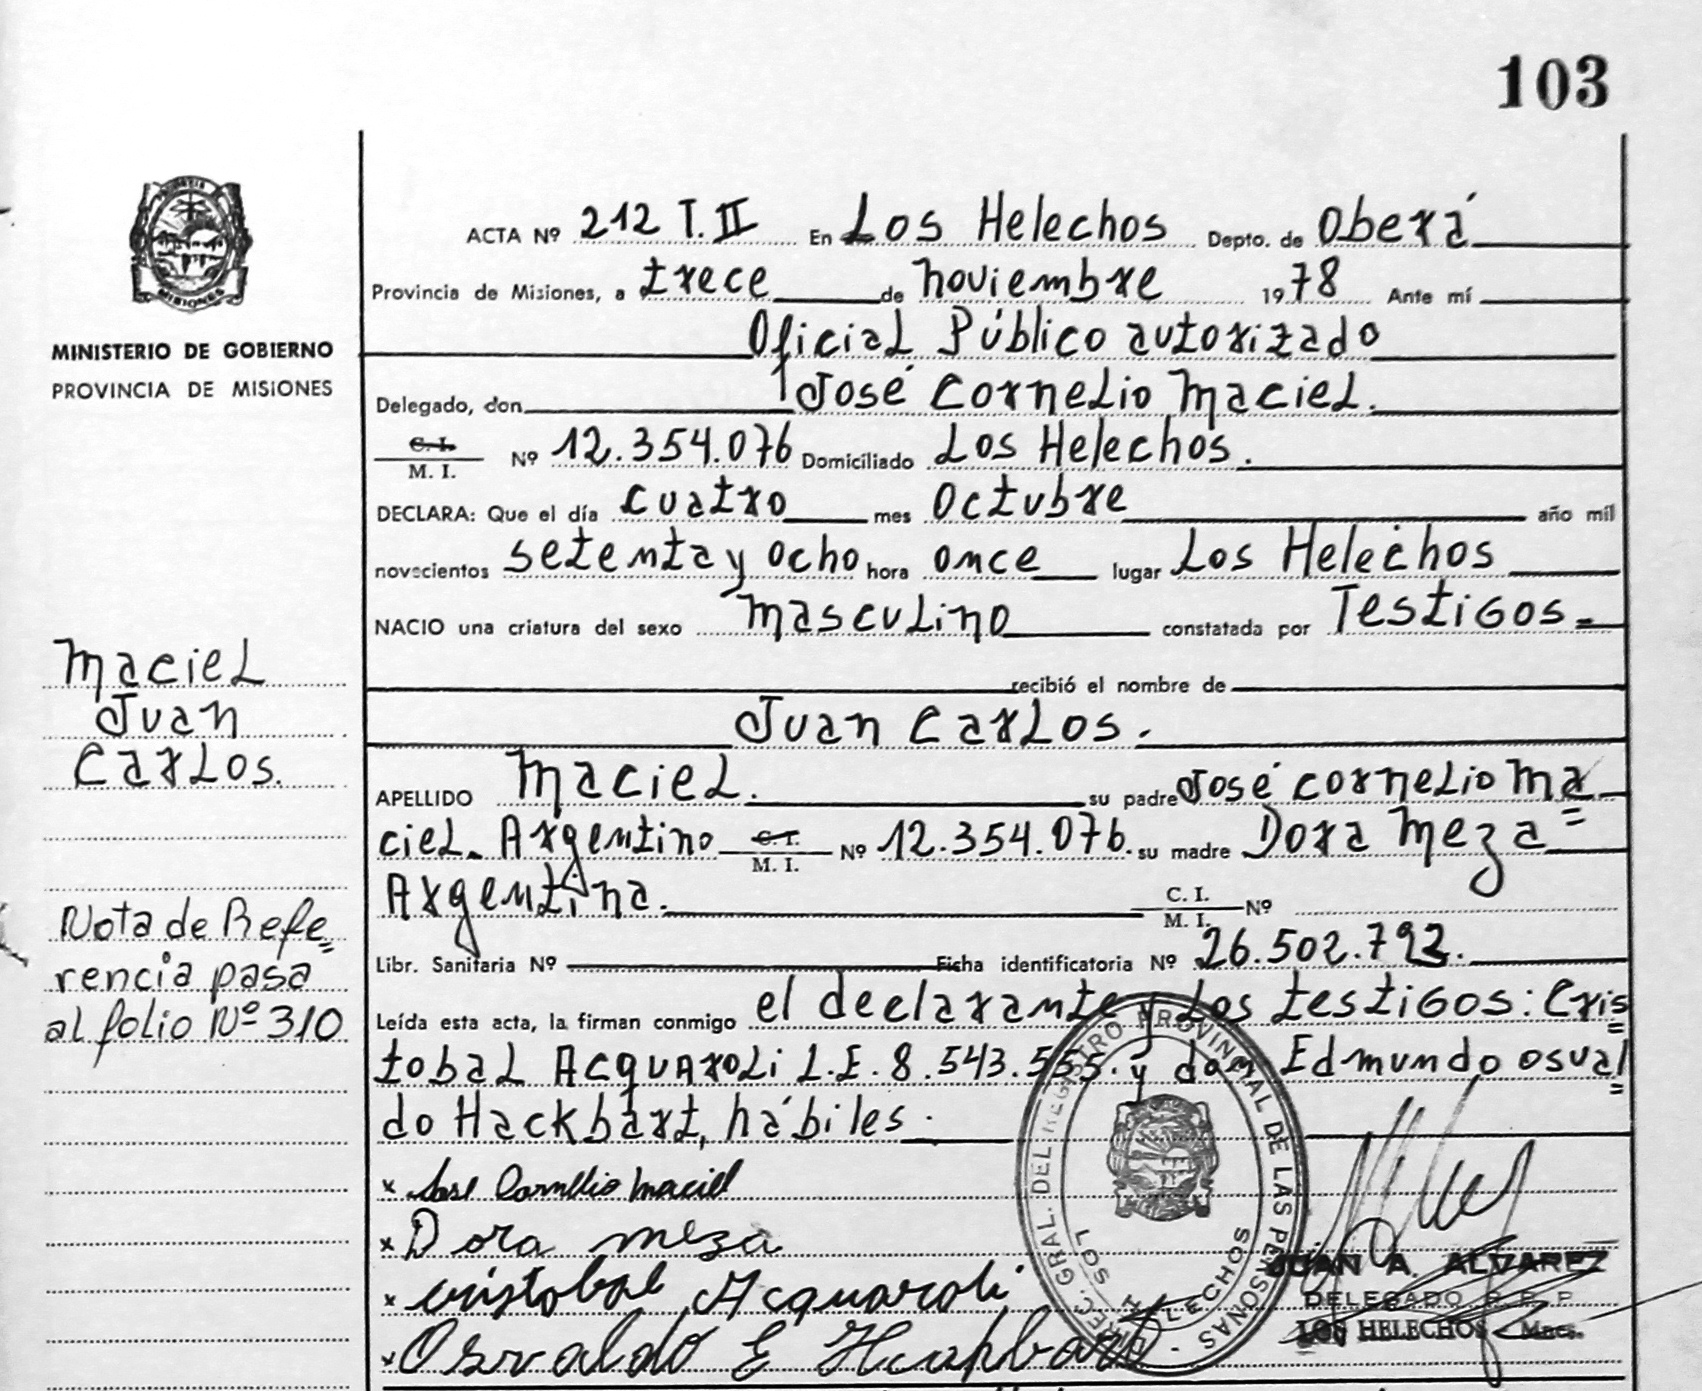 103
ACTA Nº 212 T. II En Los Helechos Depto. de Oberá
Provincia de Misiones, a trece de noviembre 1978 Ante mí
Oficial Público autorizado
Delegado, don José Cornelio Maciel.
C. I. / M. I. Nº 12.354.076 Domiciliado Los Helechos.
DECLARA: Que el día cuatro mes Octubre año mil
novecientos setenta y ocho hora once lugar Los Helechos
NACIO una criatura del sexo masculino constatada por Testigos=
recibió el nombre de
Juan Carlos.
APELLIDO Maciel. su padre José Cornelio Ma=
ciel. Argentino C. I. / M. I. Nº 12.354.076. su madre Dora Meza
Argentina. C. I. / M. I. Nº
Libr. Sanitaria Nº Ficha identificatoria Nº 26.502.792.
Leída esta acta, la firman conmigo el declarante y Los testigos: Cris=
tobal Acquaroli L.E. 8.543.555. y don Edmundo Osval=
do Hackbart, hábiles.
x Jose Cornelio Maciel
x Dora Meza
x Cristobal Acquaroli
x Osvaldo E
MISIONES
MINISTERIO DE GOBIERNO
PROVINCIA DE MISIONES
Maciel
Juan
Carlos.
Nota de Refe=
rencia pasa
al folio Nº 310
DIREC. GRAL. DEL REGISTRO PROVINCIAL DE LAS PERSONAS
LOS HELECHOS
JUAN A. ALVAREZ
DELEGADO R. P. P.
LOS HELECHOS - Mnes.